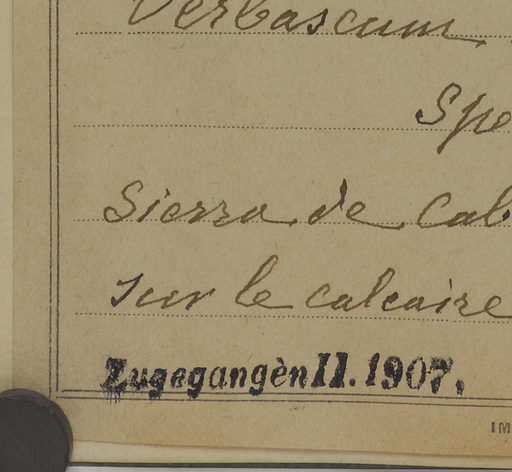 Verbascum
Spe
Sierra de Cal
sur le calcaire
Zugegangen II. 1907.
IM